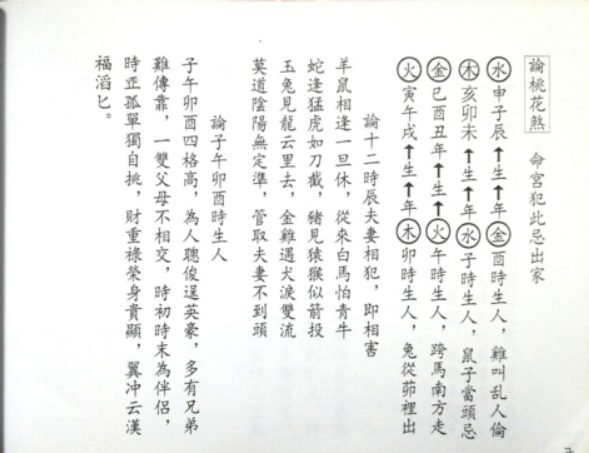 論桃花煞　命宮犯此忌出家
水申子辰↑生↑年金酉時生人，雞叫乱人倫
木亥卯未↑生↑年水子時生人，鼠子當頭忌
金巳酉丑年↑生↑火午時生人，跨馬南方走
火寅午戌↑生↑年木卯時生人，兔從茆裡出
論十二時辰夫妻相犯，即相害
羊鼠相逢一旦休，從來白馬怕青牛
蛇逢猛虎如刀截，豬見猿猴似箭投
玉兔見龍云里去，金雞遇犬淚雙流
莫道陰陽無定準，管取夫妻不到頭
論子午卯酉時生人
子午卯酉四格高，為人聰俊逞英豪，多有兄弟
難傳靠，一雙父母不相交，時初時末為伴侣，
時正孤單獨自挑，財重祿榮身貴顯，翼冲云漢
福滔匕。